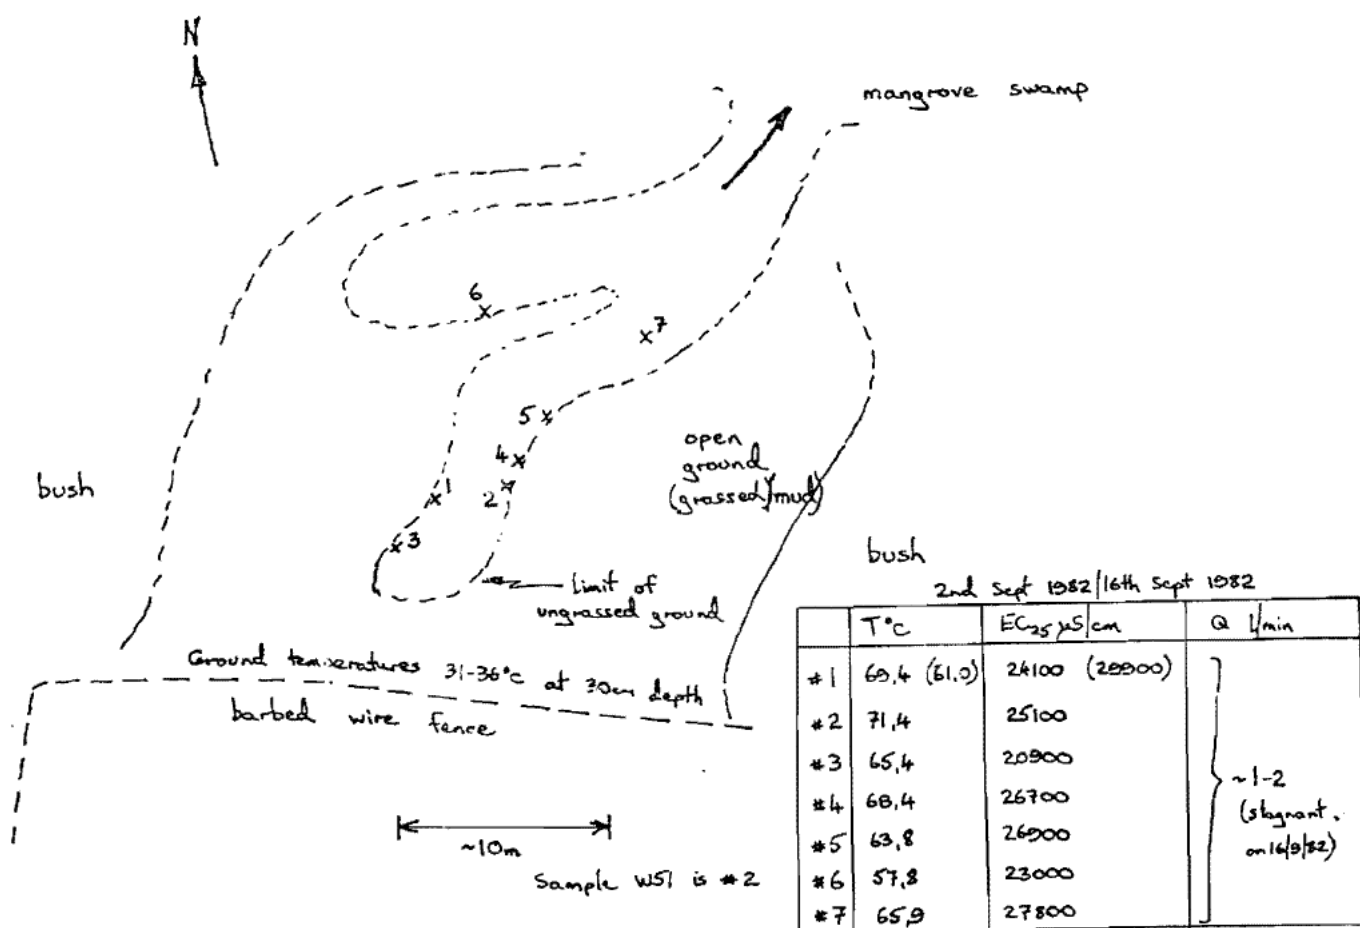 N
mangrove swamp
6
7
5
4
1
2
3
open
ground
(grassed/mud)
bush
bush
Limit of
ungrassed ground
Ground temperatures 31-36°C at 30cm depth
barbed wire fence
~10m
Sample W51 is #2
2nd Sept 1982/16th Sept 1982
T°C EC25 µS/cm Q l/min
#1 69,4 (61,0) 24100 (29900)
#2 71,4 25100
#3 65,4 20900
#4 68,4 26700
#5 63,8 26900
#6 57,8 23000
#7 65,9 27800
~1-2
(stagnant.
on 16/9/82)